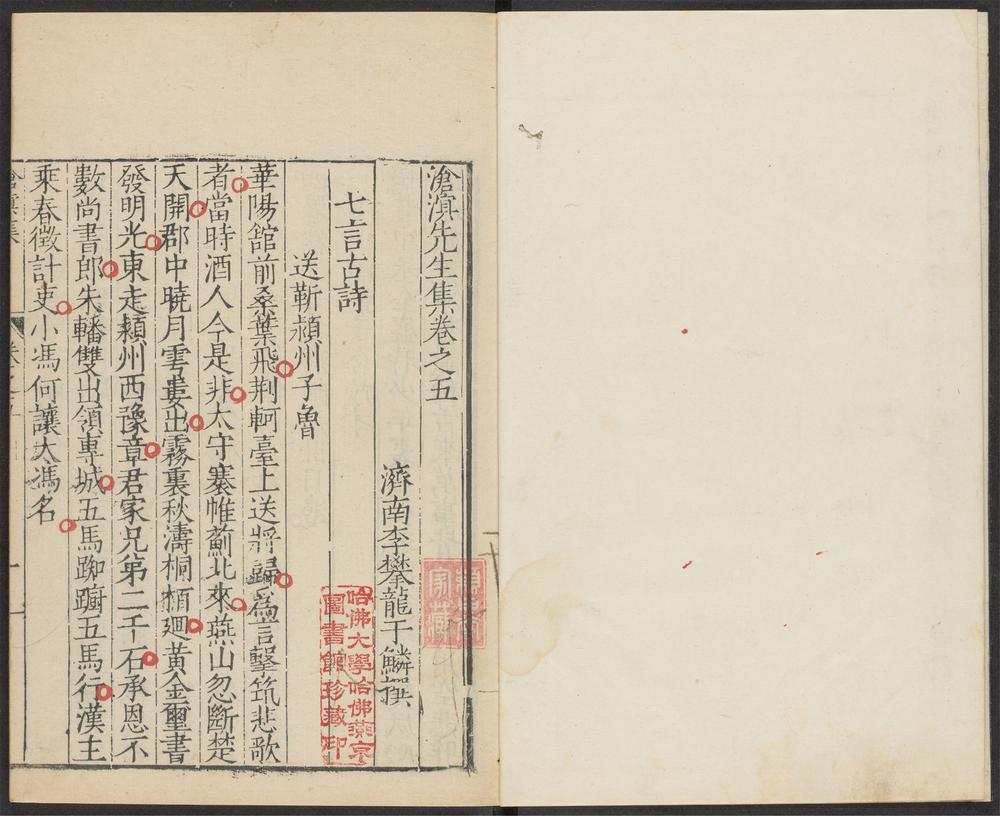 滄溟先生集卷之五
濟南李攀龍于鱗撰
七言古詩
送靳潁州子魯
華陽館前桑葉飛荆軻臺上送將歸為言擊筑悲歌
者當時酒人今是非太守褰帷薊北來燕山忽斷楚
天開郡中曉月雩婁出霧裏秋濤桐栢廻黃金璽書
發明光東走潁州西豫章君家兄弟二千石承恩不
數尚書郎朱轓雙出領專城五馬踟躕五馬行漢主
乘春徵計吏小馮何讓大馮名
哈佛大學哈佛燕京
圖書館珍藏印
家藏